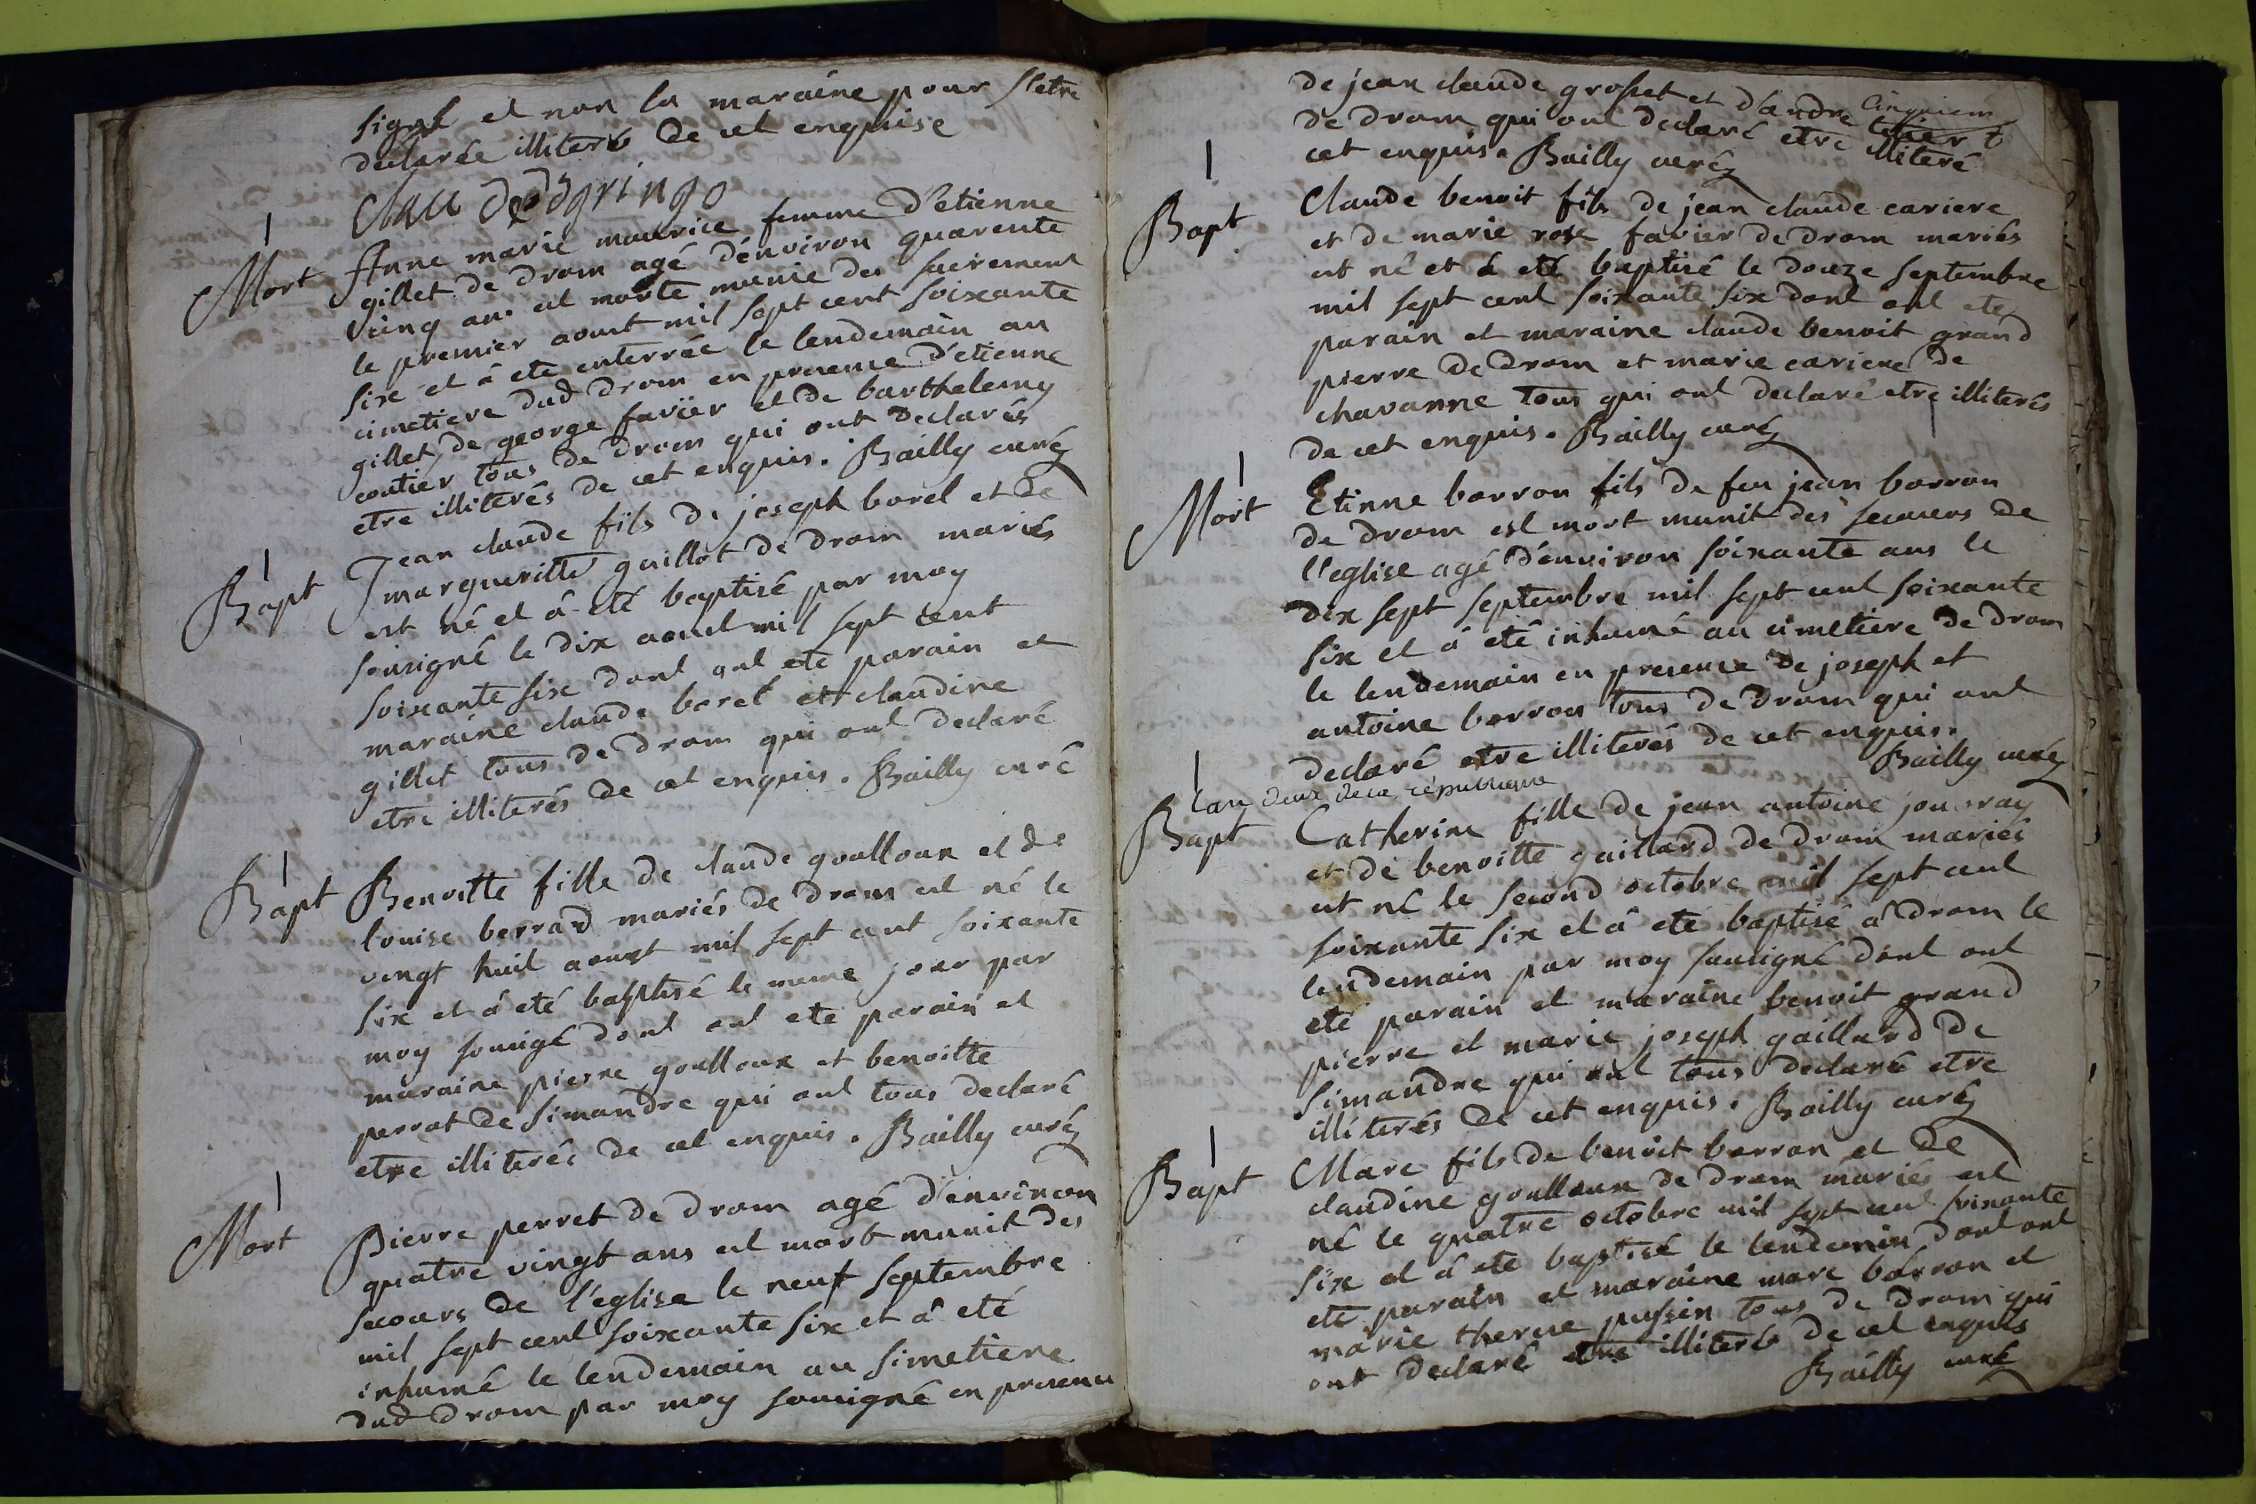 signé et non la maraine pour s'etre
declarée illiteré de cet enquise
Clau
Mort
Anne marie maurice femme d'etienne
gillet de drom agé d'environ quarente
cinq ans est morte munie des sacrement
le premier aoust mil sept cent soixante
six et à eté enterrée le lendemain au
cimetiere dud drom en presence d'etienne
gillet, de george favier et de barthelemy
contier tous de drom qui ont declarés
etre illiterés de cet enquis. Bailly curé
Bapt
Jean claude fils de joseph borel et de
margueritte guillot de drom mariés
est né et à eté baptisé par moy
sousigné le dix aoust mil sept cent
soixante six dont ont eté parain et
maraine claude borel et claudine
gillet tous de drom qui ont declaré
etre illiterés de cet enquis. Bailly curé
Bapt
Benoitte fille de claude goulloux et de
louise berrad mariés de drom est né le
vingt huit aoust mil sept cent soixante
six et à eté baptisé le meme jour par
moy sousigé dont ont eté parain et
maraine pierre goulloux et benoitte
perrot de simandre qui ont tous declaré
etre illiterés de cet enquis. Bailly curé
Mort
Pierre perret de drom agé d'environ
quatre vingt ans est mort munit des
secours de l'eglise le neuf septembre
mil sept cent soixante six et à eté
inhumé le lendemain au simetiere
dud drom par moy sousigné en presence
de jean claude grosset et d'andre
Cinquiem
de drom qui ont declaré etre illiteré
cet enquis. Bailly curé
Bapt
Claude benoit fils de jean claude cariere
et de marie rose favier de drom mariés
est né et à eté baptisé le douze septembre
mil sept cent soixante six dont ont eté
parain et maraine claude benoit grand
pierre de drom et marie cariere de
chavanne tous qui ont declaré etre illiterés
de cet enquis. Bailly curé
Mort
Etinne borron fils de feu jean borron
de drom est mort munit des secours de
l'eglise agé d'environ soixante ans le
dix sept septembre mil sept cent soixante
six et à eté inhumé au cimetiere de drom
le lendemain en presence de joseph et
antoine borron tous de drom qui ont
declaré etre illiterés de cet enquis.
Bailly curé
Lan deux de la république
Bapt
Catherine fille de jean antoine jouvray
et de benoitte gaillard de drom mariés
est né le second octobre mil sept cent
soixante six et à eté baptisé à drom le
lendemain par moy sousigné dont ont
eté parain et maraine benoit grand
pierre et marie joseph gaillard de
simandre qui ont tous declaré etre
illiterés de cet enquis. Bailly curé
Bapt
Marc fils de benoit borron et de
claudine goulloux de drom mariés est
né le quatre octobre mil sept cent soixante
six et à eté baptisé le lendemain dont ont
eté parain et maraine marc borron et
marie therese pussin tous de drom qui
ont declaré etre illiteré de cet enquis
Bailly curé